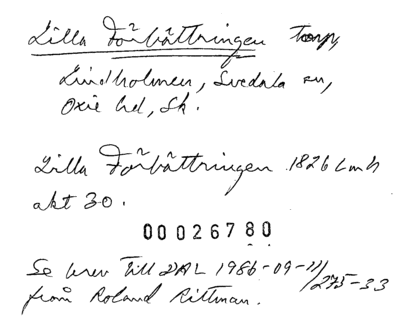 Lilla Förbättringen torp,
Lindholmen, Svedala sn,
Oxie hd, Sk.
Lilla Förbättringen 1826 Lmh
akt 30.
00026780
Se brev till DAL 1986-09-11/275-33
från Roland Rittman.